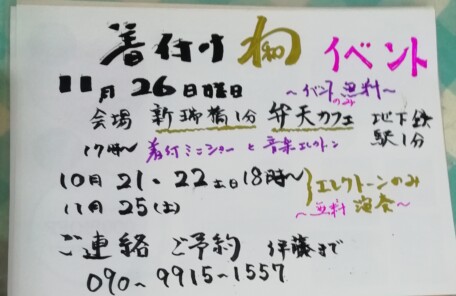 着付け 初 イベント
11月26日日曜日 ~イベントのみ無料~
会場 新瑞橋1分 弁天カフェ 地下鉄駅1分
17時~ 着付ミニショーと音楽エレクトーン
10月21・22土日18時~ エレクトーンのみ
11月25(土) ~無料演奏~
ご連絡 ご予約 伊藤まで
090~9915~1557